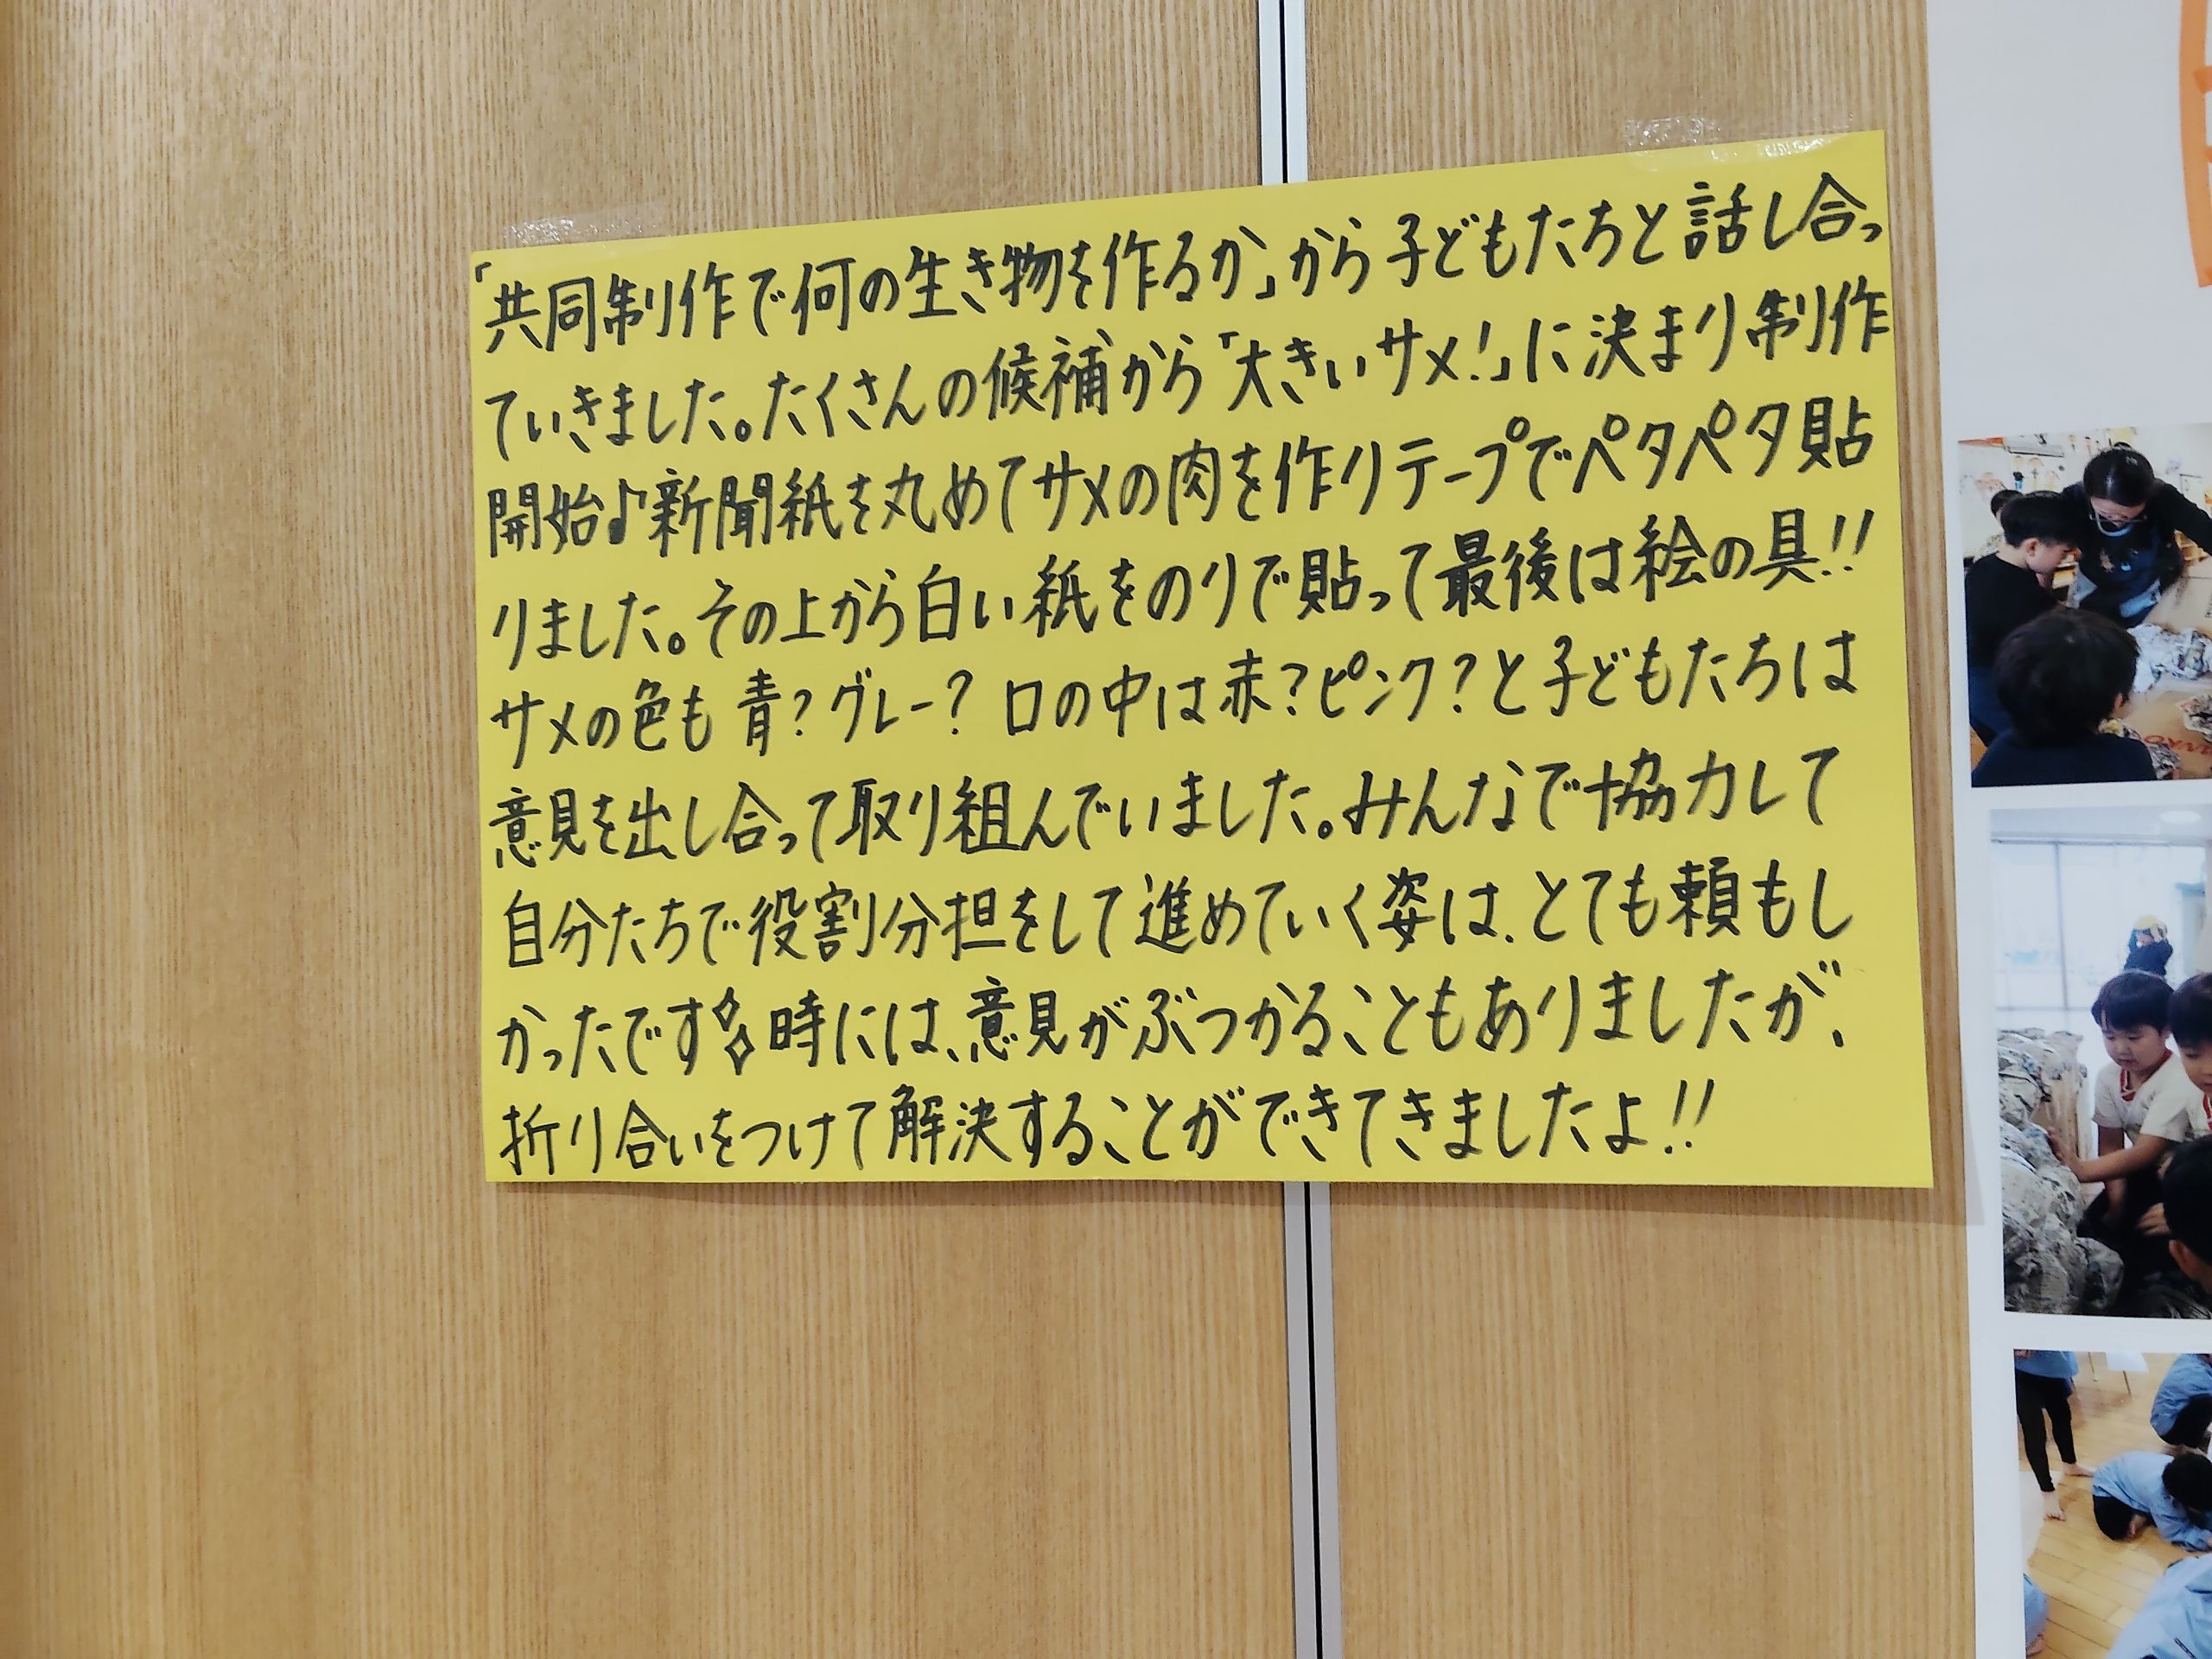 「共同制作で何の生き物を作るか」から子どもたちと話し合っ
ていきました。たくさんの候補から「大きいサメ!」に決まり制作
開始♪新聞紙を丸めてサメの肉を作りテープでペタペタ貼
りました。その上から白い紙をのりで貼って最後は絵の具!!
サメの色も青?グレー?口の中は赤?ピンク?と子どもたちは
意見を出し合って取り組んでいました。みんなで協力して
自分たちで役割分担をして進めていく姿は、とても頼もし
かったです 時には、意見がぶつかることもありましたが、
折り合いをつけて解決することができてきましたよ!!